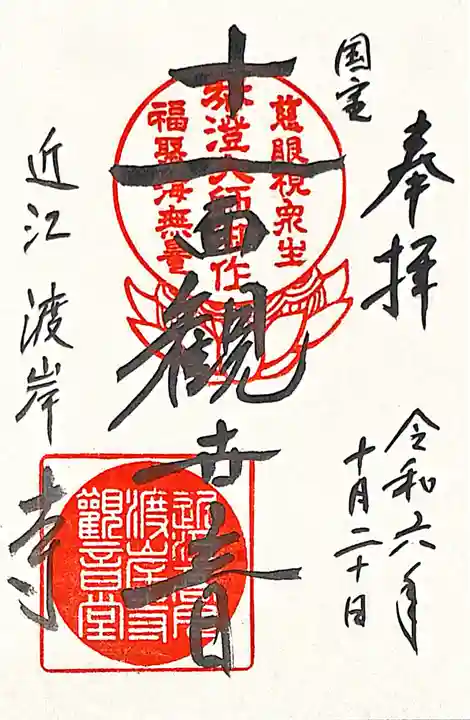 奉拝
令和六年
十月二十日
国宝
十一面観世音
慈眼視衆生
最澄大師自作
福聚海無量
近江渡岸寺
近江国
渡岸寺
観音堂